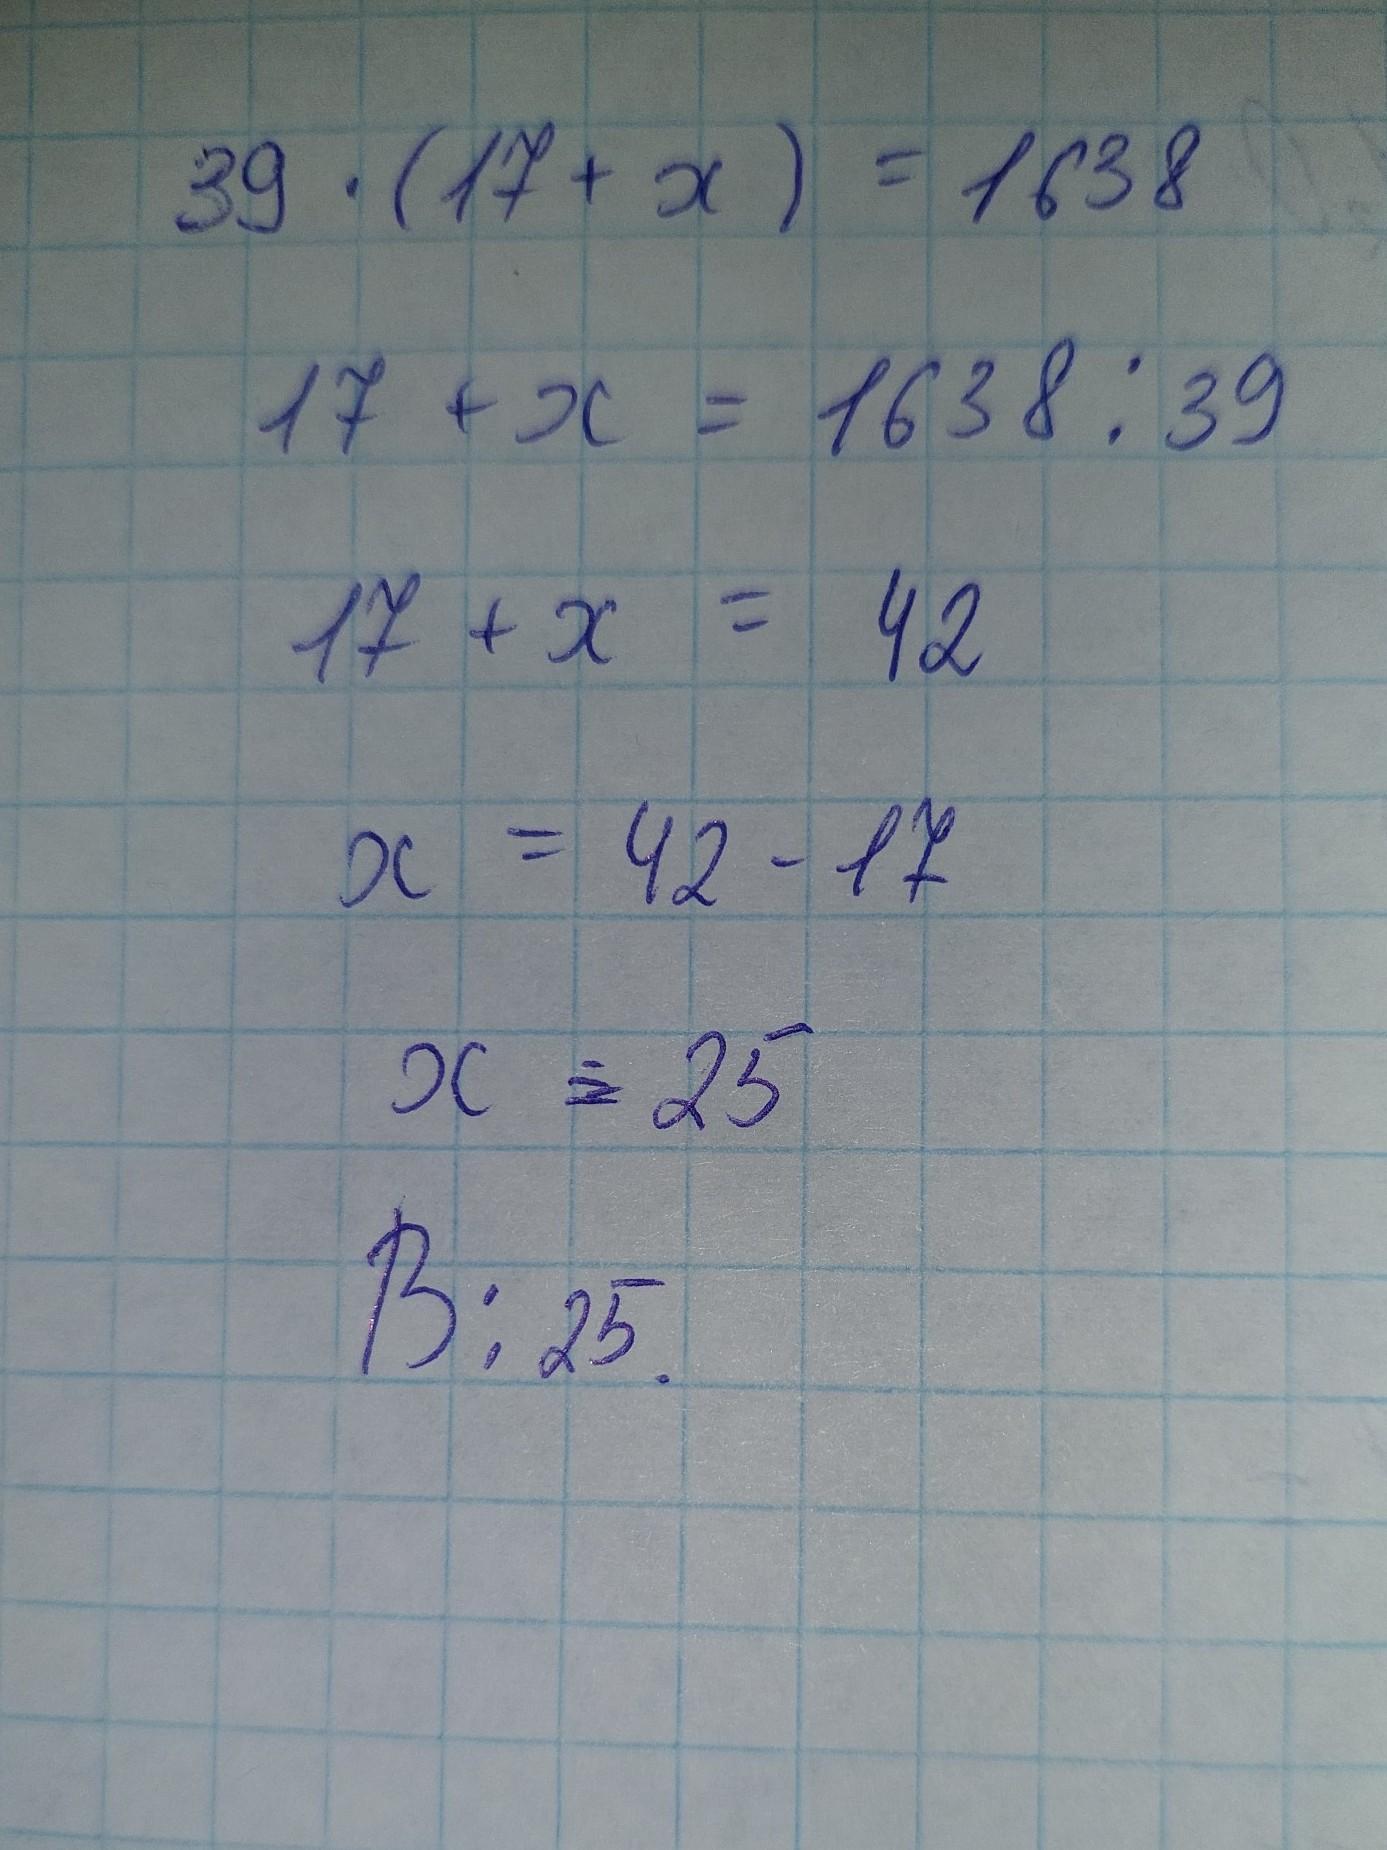 39 · (17 + x) = 1638
17 + x = 1638 : 39
17 + x = 42
x = 42 - 17
x = 25
В: 25.